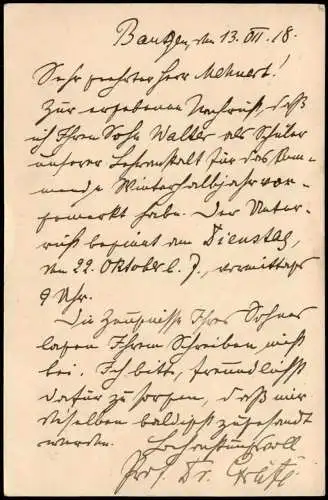 Bautzen, den 13. VII. 18.
Sehr geehrter Herr Mehnert!
Zur ergebenen Nachricht, daß
ich Ihren Sohn Walter als Schüler
unserer Lehranstalt für das kom-
mende Winterhalbjahr vor-
gemerkt habe. Der Unter-
richt beginnt am Dienstag,
den 22. Oktober d. J., vormittags
9 Uhr.
Die Zeugnisse Ihres Sohnes
lagen Ihrem Schreiben nicht
bei. Ich bitte, freundlichst
dafür zu sorgen, daß mir
dieselben baldigst zugesandt
werden.
Hochachtungsvoll
Prof. Dr.